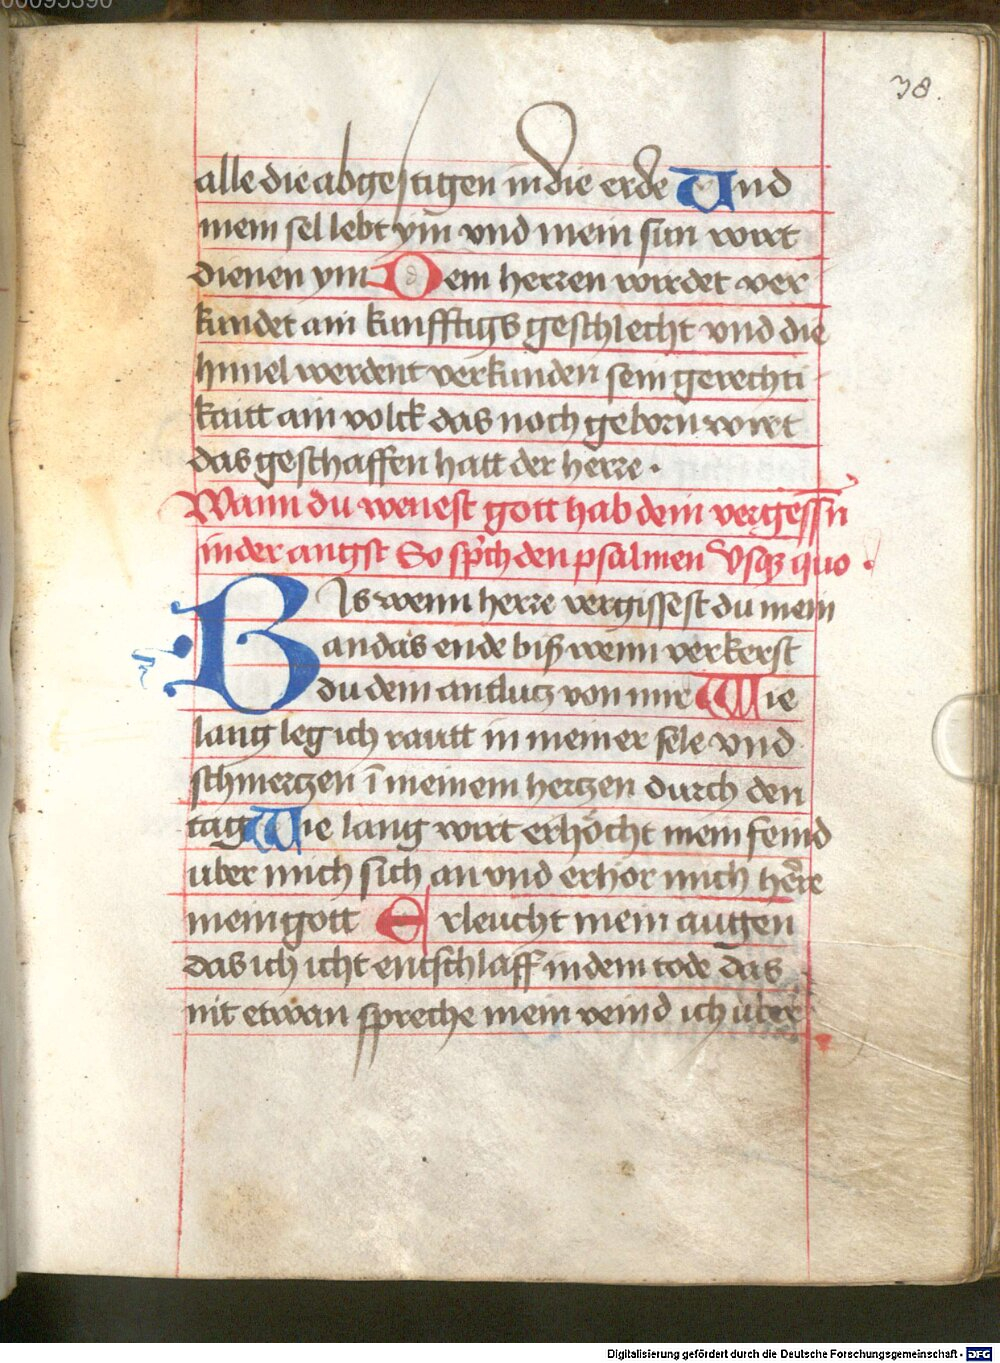 00095390
38.
alle die abgestigen in die erde Und
mein sel lebt ym̅ vnd mein sun wirt
dienen ym Dem herren wirdet ver
kundet ain kunfftigs geschlecht vnd die
himel werdent verkunden sein gerechti
kaitt ain volck das noch geborn wirt
das geschaffen hatt der herre.
Wann du wenest gott hab dein vergessn̅
in der angst So sp̾ch den psalmen Vsqȝ quo.
Bis wenn herre vergissest du mein
an das ende biß wenn verkerst
du dein antlutz von mir Wie
lang leg ich rautt in meiner sele vnd
schmertzen i̅ meinem hertzen durch den
tag Wie lang wirt erhöcht mein feind
uber mich sich an vnd erhor mich herre
mein gott Erleucht mein augen
das ich icht entschlaff in dem tode das
nit etwan spreche mein veind ich uber
Digitalisierung gefördert durch die Deutsche Forschungsgemeinschaft - DFG